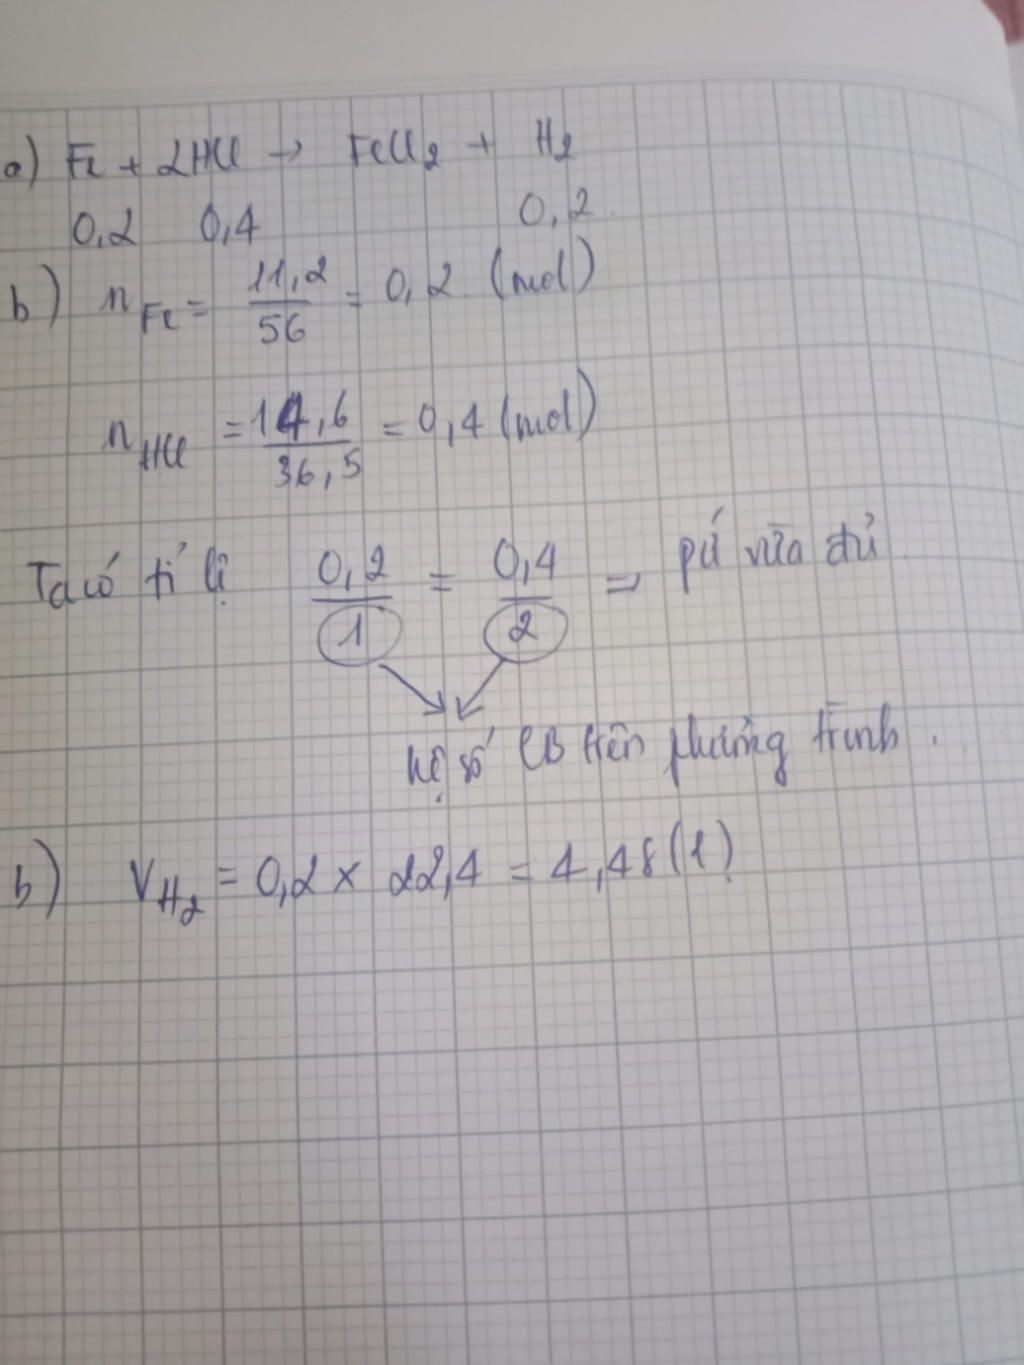 a) Fe + 2HCl → FeCl₂ + H₂
0,2 0,4 0,2
b) n_Fe = 11,2/56 = 0,2 (mol)
n_HCl = 14,6/36,5 = 0,4 (mol)
Ta có tỉ lệ 0,2/1 = 0,4/2 ⇒ pứ vừa đủ
hệ số CB trên phương trình.
b) V_H₂ = 0,2 × 22,4 = 4,48 (l)